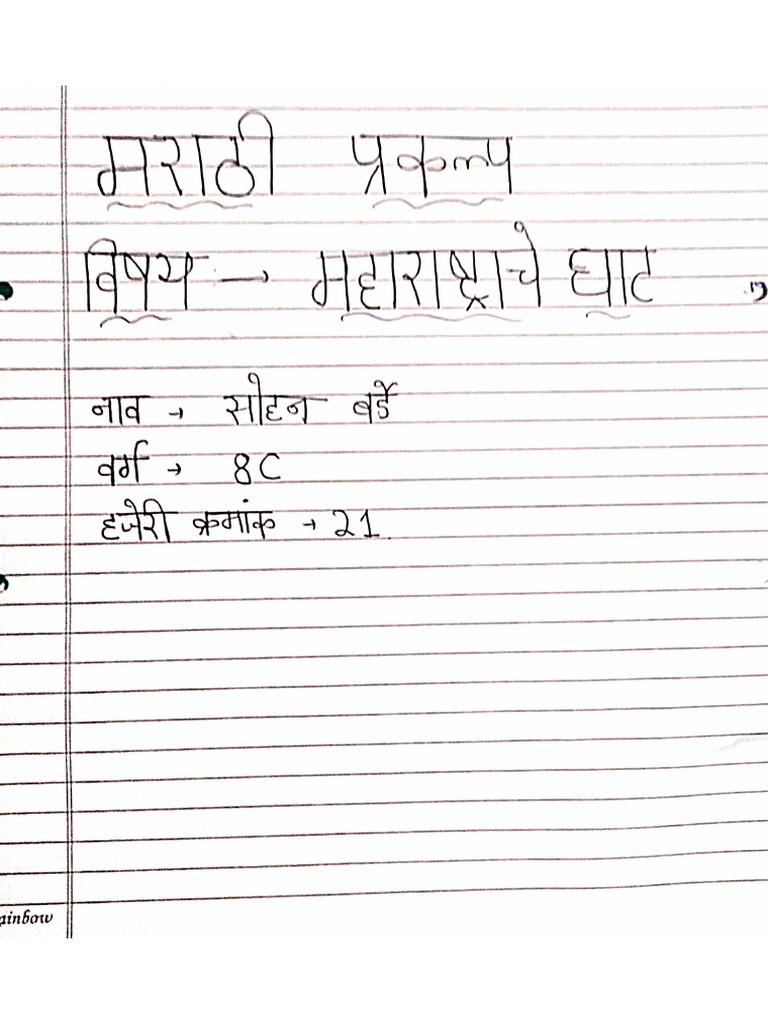 मराठी प्रकल्प
विषय → महाराष्ट्राचे घाट
नाव → सोहन बर्डे
वर्ग → 8C
हजेरी क्रमांक → 21.
ainbow